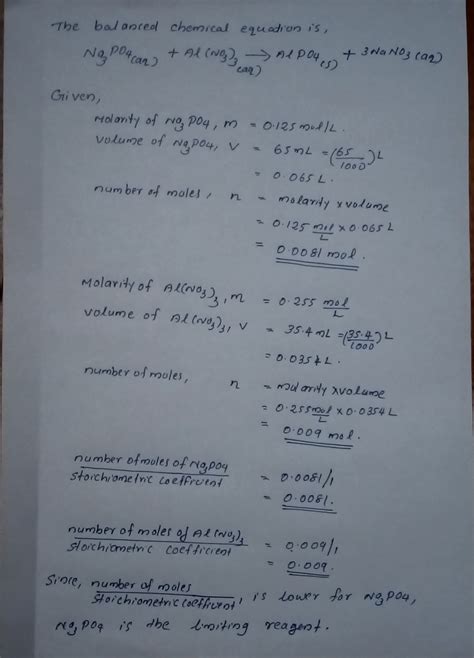 The balanced chemical equation is,
Na3PO4(aq) + Al(NO3)3(aq) → AlPO4(s) + 3NaNO3(aq)
Given,
Molarity of Na3PO4, m = 0.125 mol/L.
volume of Na3PO4, V = 65 mL = (65/1000) L
= 0.065 L.
number of moles, n = molarity x volume
= 0.125 mol/L x 0.065 L
= 0.0081 mol.
Molarity of Al(NO3)3, m = 0.255 mol/L
volume of Al(NO3)3, V = 35.4 mL = (35.4/1000) L
= 0.0354 L.
number of moles, n = molarity x volume
= 0.255 mol/L x 0.0354 L
= 0.009 mol.
number of moles of Na3PO4 / stoichiometric coeffrcent = 0.0081/1
= 0.0081.
number of moles of Al(NO3)3 / stoichiometric coefficient = 0.009/1
= 0.009.
Since, number of moles / stoichiometric coeffrcent, is lower for Na3PO4,
Na3PO4 is the limiting reagent.